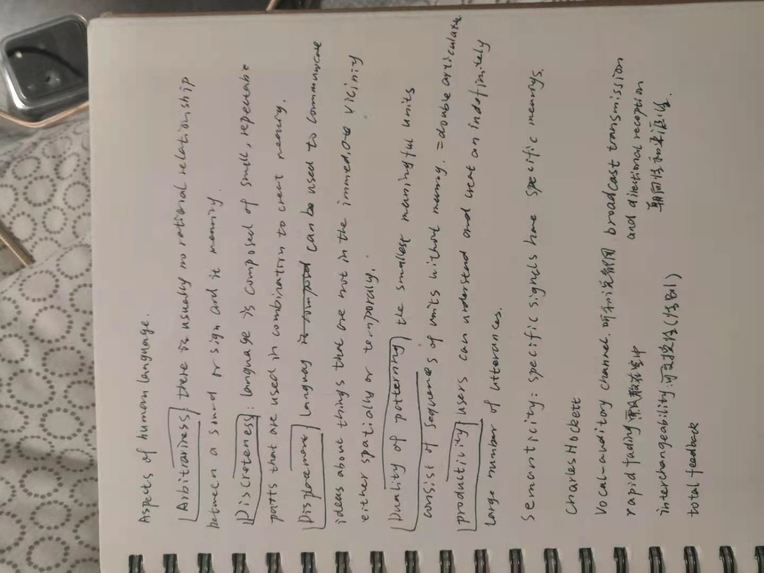 Aspects of human language.
Arbitrariness, there is usually no rational relationship
between a sound or sign and it meaning.
Discreteness: language is composed of small, repeatable
parts that are used in combination to creat meaning.
Displacement languag is composed can be used to communicate
ideas about things that are not in the immediate vicinity
either spatially or temporaly.
Duality of patterning the smallest maningful units
consist of sequences of units without meaning. = double articulate
productivity users can understand and creat an indefinitely
large number of utterances.
Semanticity: specific signals have specific meanings.
Charles Hockett
Vocal-auditory channel. 听和说 broadcast transmission
rapid fading and dilectional reception
interchangeability 可互换性(性别) 朝向性和来源性.
total feedback